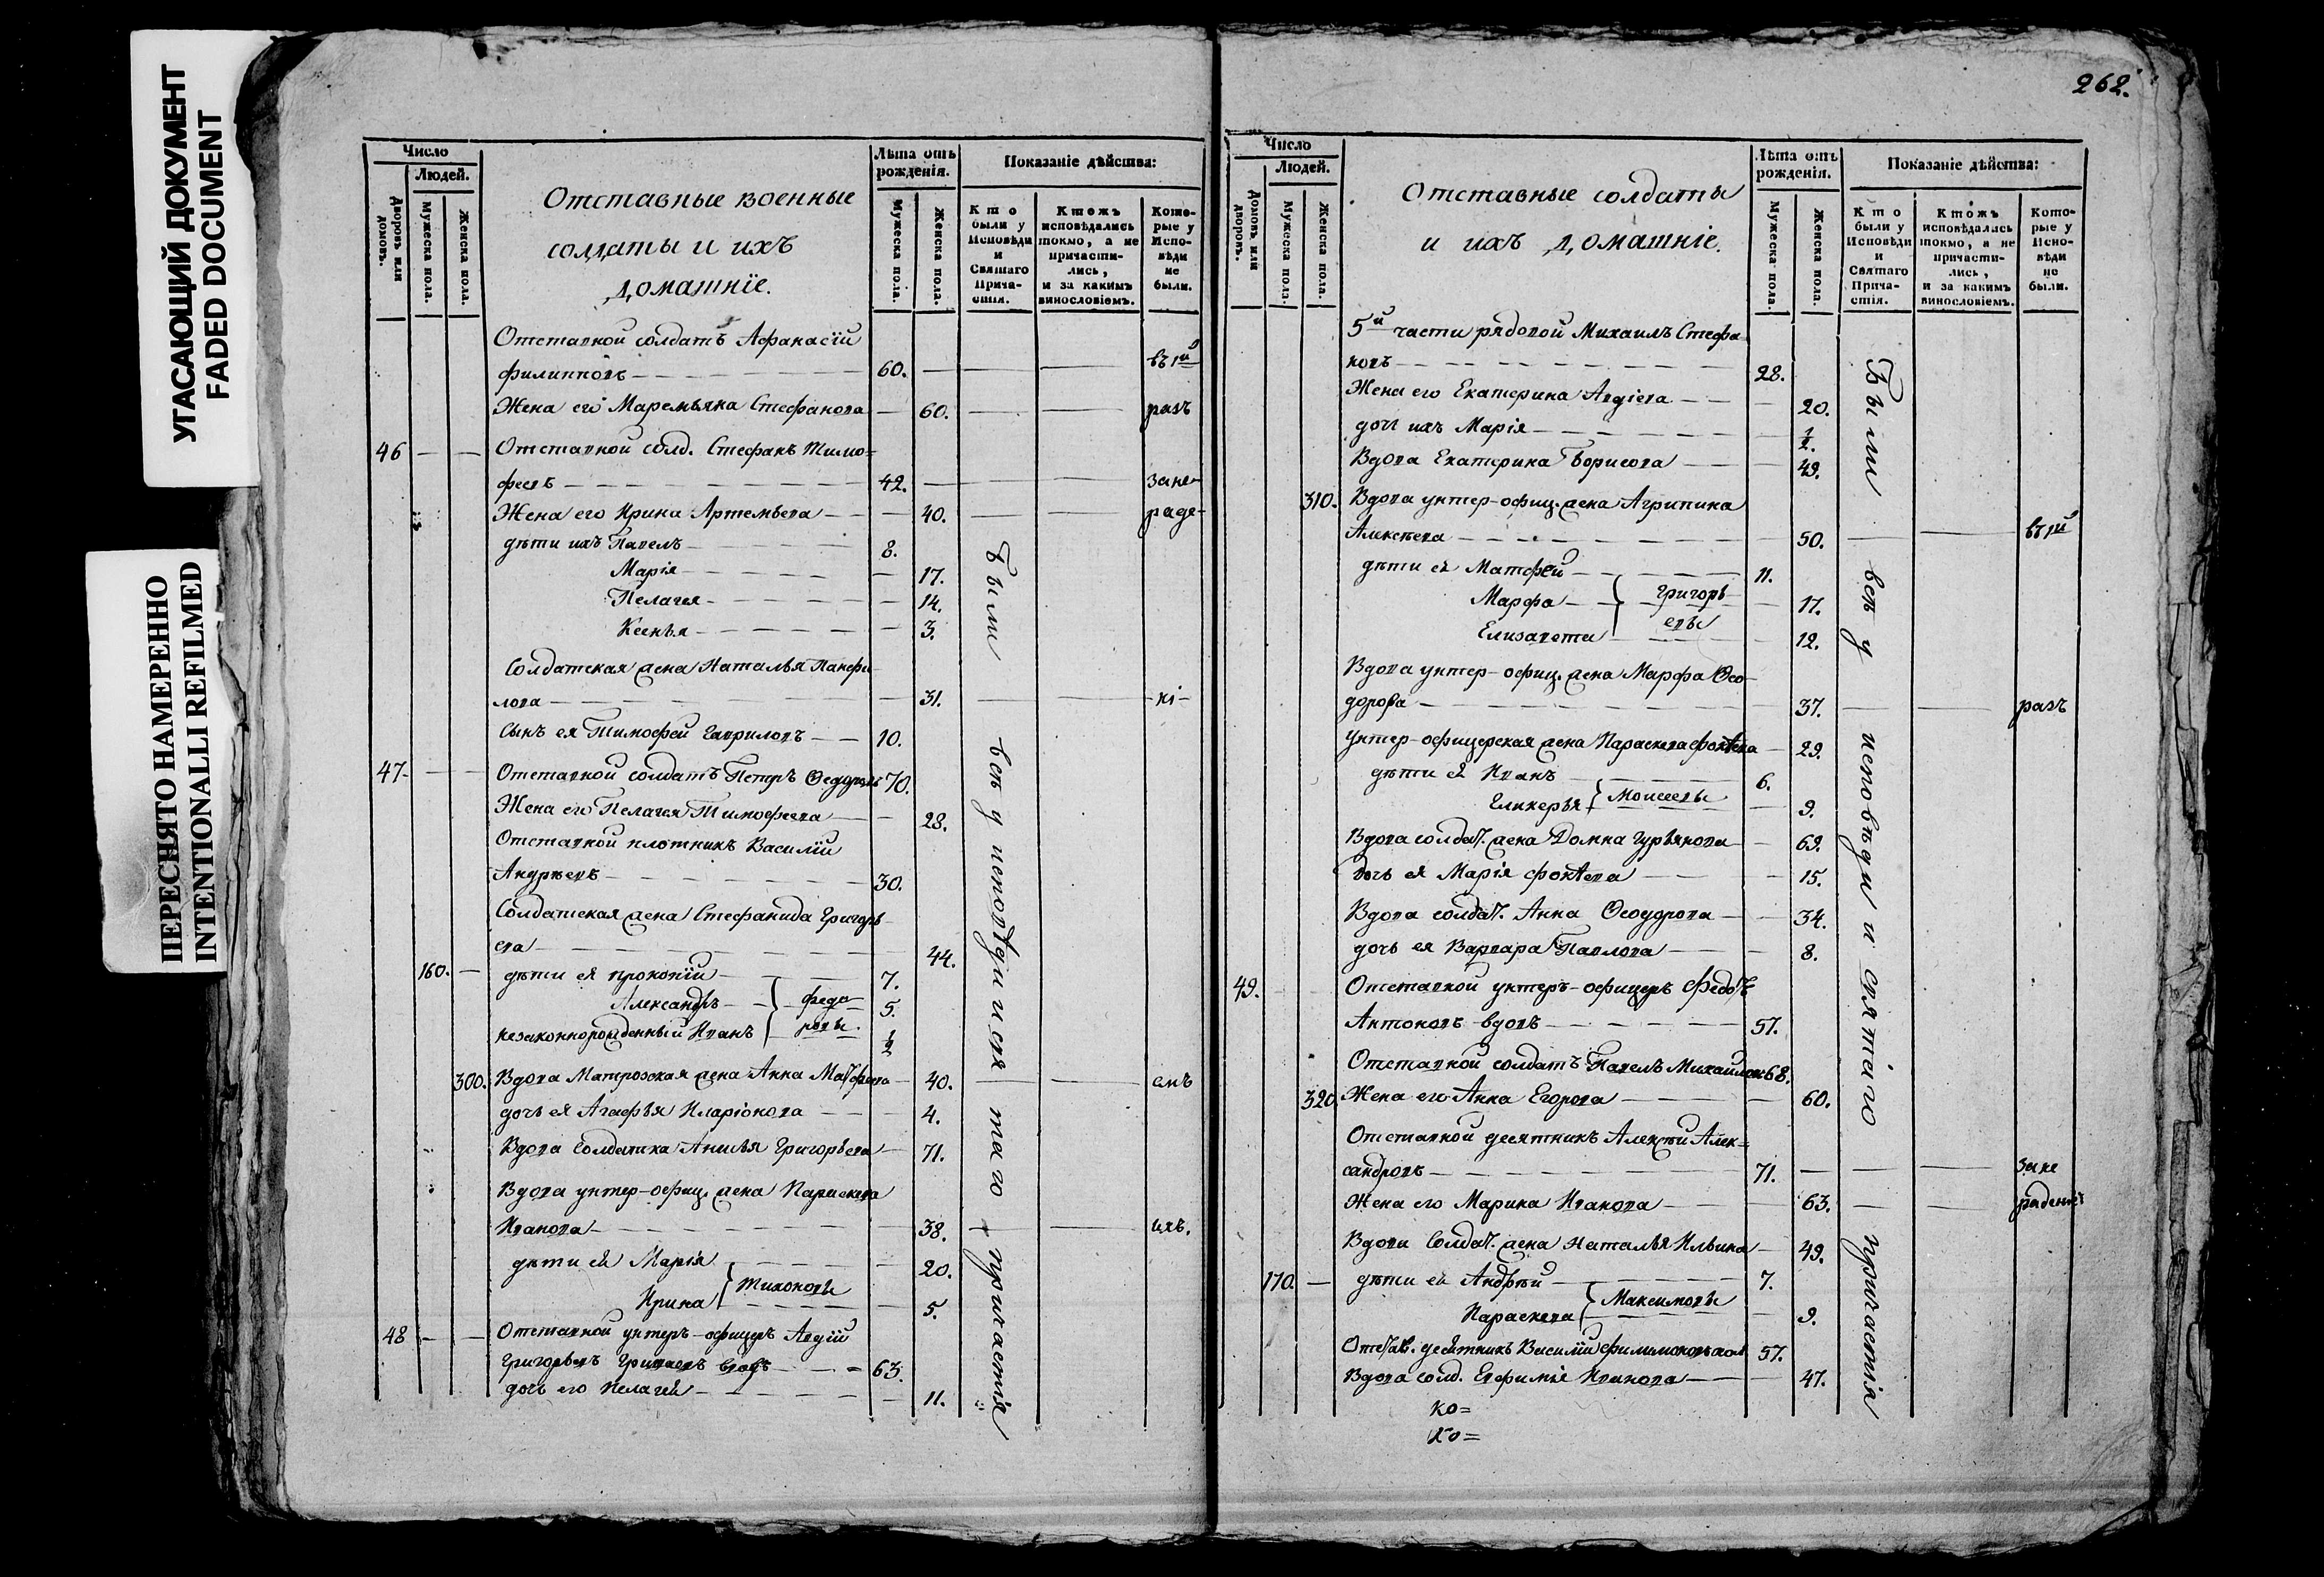 УГАСАЮЩИЙ ДОКУМЕНТ
FADED DOCUMENT
ПЕРЕСНЯТО НАМЕРЕННО
INTENTIONALLI REFILMED
Число
Людей.
Дворовъ или домовъ.
Мужеска пола.
Женска пола.
Отставные военные
солдаты и ихъ
домашніе.
Лѣта отъ рожденія.
Мужеска пола.
Женска пола.
Показаніе дѣйства:
Кто были у Исповѣди и Святаго Прича-стія.
Ктожъ исповѣдались токмо, а не причасти-лись, и за какимъ винословіемъ.
Кото-рые у Испо-вѣди не были.
Отставной солдатъ Афанасій
Филиповъ 60. въ 1й
Жена его Маремьяна Стефанова 60. разъ
46 Отставной солд. Стефанъ Тимо=
феевъ 42. зане-
Жена его Ирина Артемьева 40. раде-
дѣти ихъ Павелъ 8.
Марія 17.
Пелагея 14.
Ксенья 3.
Солдатская жена Наталья Панфи-
лова 31. ні-
Сынъ ея Тимофей Гавриловъ 10.
47 Отставной солдатъ Петръ Ѳедоровъ 70.
Жена его Пелагея Тимофеева 28.
Отставной плотникъ Василій
Андрѣевъ 30.
Солдатская жена Стефанида Григорь-
ева 44.
160. дѣти ея Прокопій 7.
Александръ Федо- 5.
незаконнорожденный Иванъ ровы. 1/2
300. Вдова Матрозская жена Анна Матфеева 40. емъ
дочь ея Агафья Иларіонова 4.
Вдова Солдатка Анисья Григорьева 71.
Вдова унтер-офиц. жена Параскева
Иванова 38. ихъ.
дѣти ея Марія 20.
Ирина Тихоновы 5.
48 Отставной унтеръ-офицеръ Авдій
Григорьевъ вдовъ 63.
дочь его Пелагея 11.
Были всѣ у исповѣди и святаго причастія
262.
Число
Людей.
Домовъ или дворовъ.
Мужеска пола.
Женска пола.
Отставные солдаты
и ихъ домашніе.
Лѣта отъ рожденія.
Мужеска пола.
Женска пола.
Показаніе дѣйства:
Кто были у Исповѣди и Святаго Прича-стія.
Ктожъ исповѣдались токмо, а не причасти-лись, и за какимъ винословіемъ.
Кото-рые у Испо-вѣди не были.
5й части рядовой Михаилъ Стефа-
новъ 28.
Жена его Екатерина Авдіева 20.
дочь ихъ Марія 1/2.
Вдова Екатерина Борисова 49.
310. Вдова унтер-офиц. жена Агрипина
Алексѣева 50. въ 1й
дѣти ея Матфей 11.
Марфа Григорь- 17.
Елизавета евы 12.
Вдова унтер-офиц. жена Марфа Ѳео-
дорова 37. разъ
Унтер-офицерская жена Параскева Фокѣева 29.
дѣти ея Иванъ 6.
Гликерья Моисеевы 9.
Вдова солдат. жена Домна Гурьянова 69.
дочь ея Марія Фокѣева 15.
Вдова солдат. Анна Ѳеодорова 34.
дочь ея Варвара Павлова 8.
49. Отставной унтеръ-офицеръ Федотъ
Антоновъ вдовъ 57.
Отставной солдатъ Павелъ Михайловъ 68.
320. Жена его Анна Егорова 60.
Отставной десятникъ Алексѣй Алек=
сандровъ 71. зане
Жена его Марина Иванова 63. раденіе
Вдова Солдат. жена Наталья Ильина 49.
170. дѣти ея Андрѣй 7.
Параскева Максимовы 9.
Отстав. десятникъ Василій Филимоновъ 57.
Вдова солд. Евфимія Иванова 47.
Были всѣ у исповѣди и святаго причастія